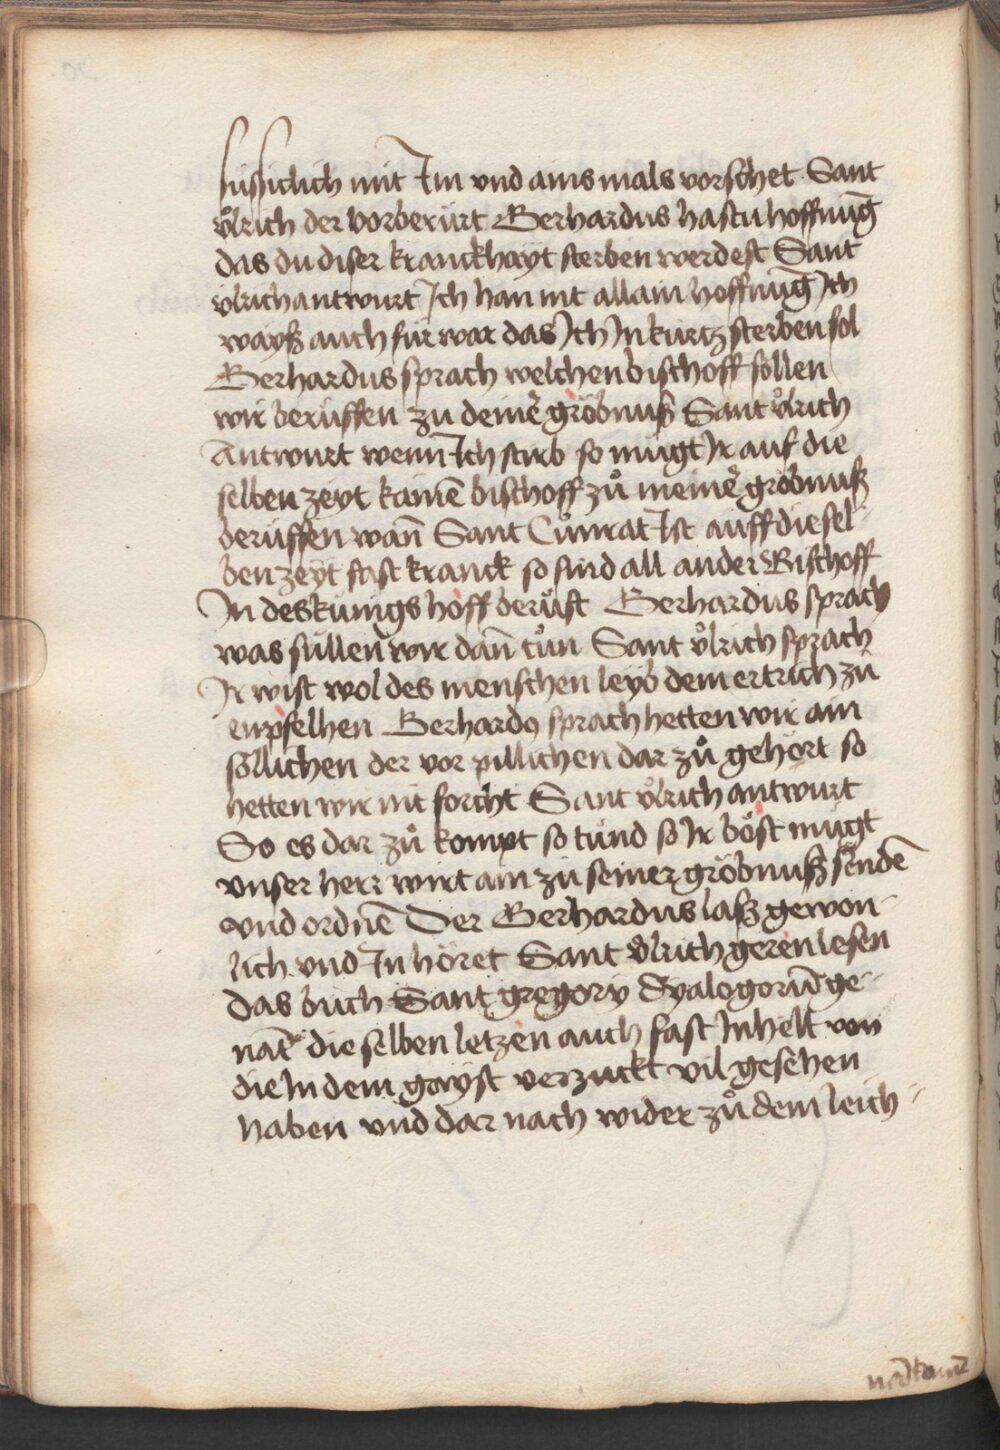 hussiclich mit Im vnd ains mals vorschet Sant
vͦlrich der vorberürt Gerhardus hastu hoffnūg
das du diser kranckhayt sterben werdest Sant
vͦlrich antwurt Ich han nit allain hoffnūg Ich
wayß auch für war das Ich In kürtz sterben sol
Gerhardus sprach welchen bischoff söllen
wir berüffen zu deinē gröbnuß Sant vͦlrich
Antwurt wenn Ich stirb so mügt Ir auf die
selben zeyt kainē bischoff zuͦ meinē gröbnuß
berüffen wan̄ Sant Cuͦnrat Ist auff die sel-
ben zeyt fast kranck so sind all ander Bischoff
In des künigs hoff berüft Gerhardus sprach
was süllen wir dan̄ tuͦn Sant vͦlrich sprach
Ir wist wol des menschen leyb dem ertrich zü
enpfelhen Gerhardꝰ sprach hetten wir ain
söllichen der vor pillichen dar zuͦ gehört so
hetten wir nit forcht Sant vͦlrich antwürt
So es dar zuͦ kompt so tuͦnd so Ir böst mügt
vnser herr wirt ain zü seiner gröbnuß sendē
vnd ordnē Der Gerhardus laß gewon-
lich vnd In höret Sant vͦlrich geren lesen
das büch Sant gregory dyalogorū ge-
nāt die selben letzen auch fast Inhelt von
die In dem gayst verzuckt vil gesehen
haben vnd dar nach wider zuͦ dem leich-